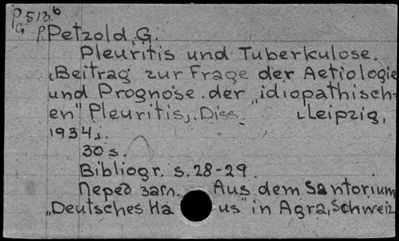 P 513⁶
G
Petzold, G.
Pleuritis und Tuberkulose.
Beitrag zur Frage der Aetiologie
und Prognose der „idiopathisch-
en" Pleuritis, Diss. Leipzig,
1934.
30 s.
Bibliogr. s. 28-29.
Перед загл. Aus dem Santorium
„Deutsches Ha us" in Agra, Schweiz